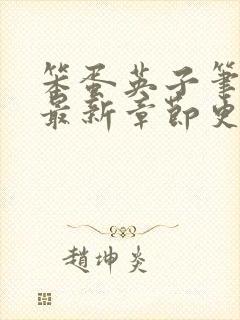 笨蛋英子筆
最新章節史
趙坤炎